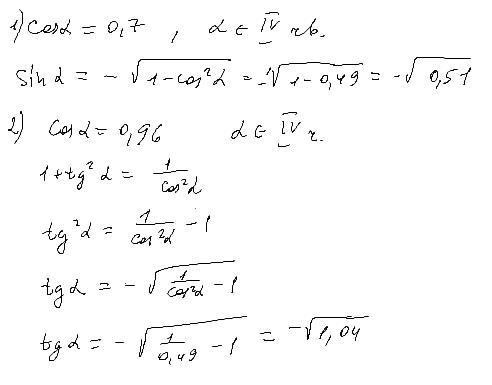 1) cos α = 0,7 , α ∈ IV чв.
sin α = - √(1 - cos²α) = -√(1 - 0,49) = -√0,51
2) cos α = 0,96 α ∈ IV ч.
1 + tg² α = 1/cos²α
tg² α = 1/cos²α - 1
tg α = - √(1/cos²α - 1)
tg α = - √(1/0,49 - 1) = -√1,04